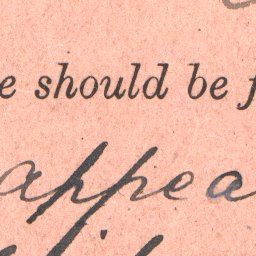 e should be f
appea